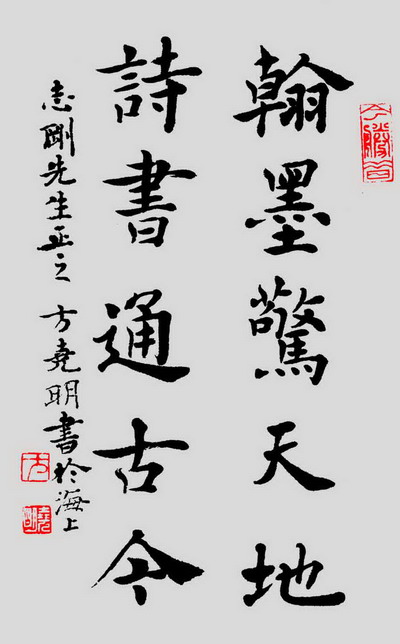 翰墨驚天地
詩書通古今
志剛先生正之 方堯明書於海上